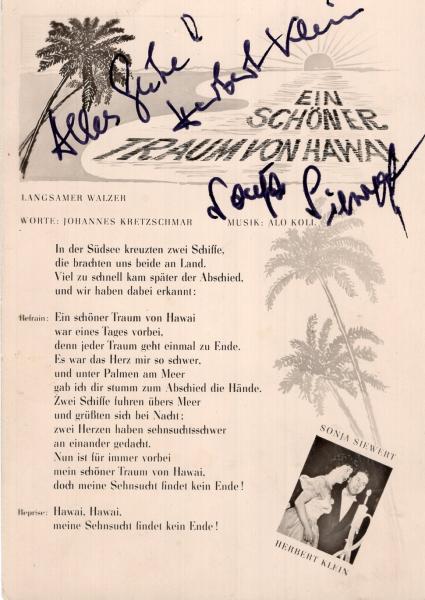 Alles Gute!
Herbert Klein
EIN
SCHÖNER
TRAUM VON HAWAI
Sonja Siewert
LANGSAMER WALZER
WORTE: JOHANNES KRETZSCHMAR MUSIK: ALO KOLL
In der Südsee kreuzten zwei Schiffe,
die brachten uns beide an Land.
Viel zu schnell kam später der Abschied,
und wir haben dabei erkannt:
Refrain: Ein schöner Traum von Hawai
war eines Tages vorbei,
denn jeder Traum geht einmal zu Ende.
Es war das Herz mir so schwer,
und unter Palmen am Meer
gab ich dir stumm zum Abschied die Hände.
Zwei Schiffe fuhren übers Meer
und grüßten sich bei Nacht;
zwei Herzen haben sehnsuchtsschwer
an einander gedacht.
Nun ist für immer vorbei
mein schöner Traum von Hawai,
doch meine Sehnsucht findet kein Ende!
Reprise: Hawai, Hawai,
meine Sehnsucht findet kein Ende!
SONJA SIEWERT
HERBERT KLEIN